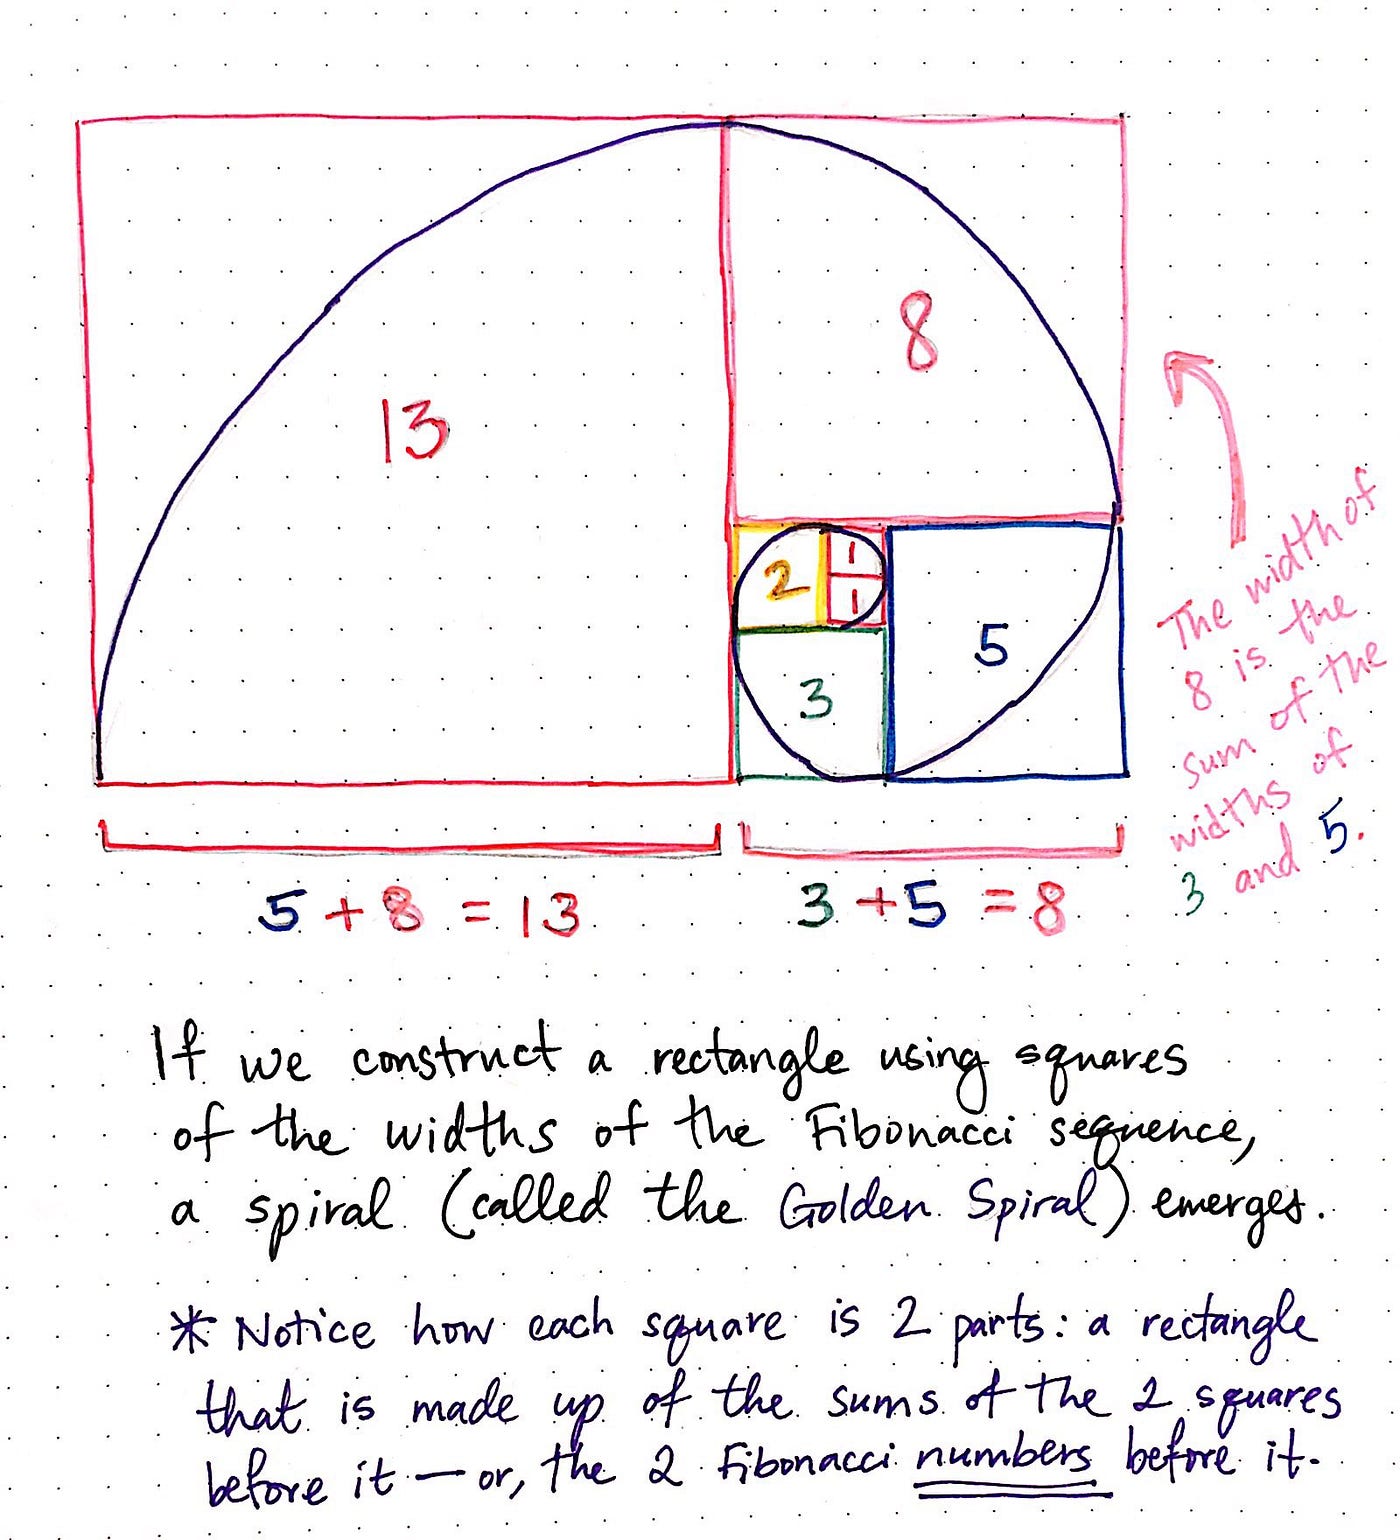 13
8
2
1
1
5
3
The width of
8 is the
sum of the
widths of
3 and 5.
5 + 8 = 13
3 + 5 = 8
If we construct a rectangle using squares
of the widths of the Fibonacci sequence,
a spiral (called the Golden Spiral) emerges.
* Notice how each square is 2 parts: a rectangle
that is made up of the sums of the 2 squares
before it — or, the 2 Fibonacci numbers before it.